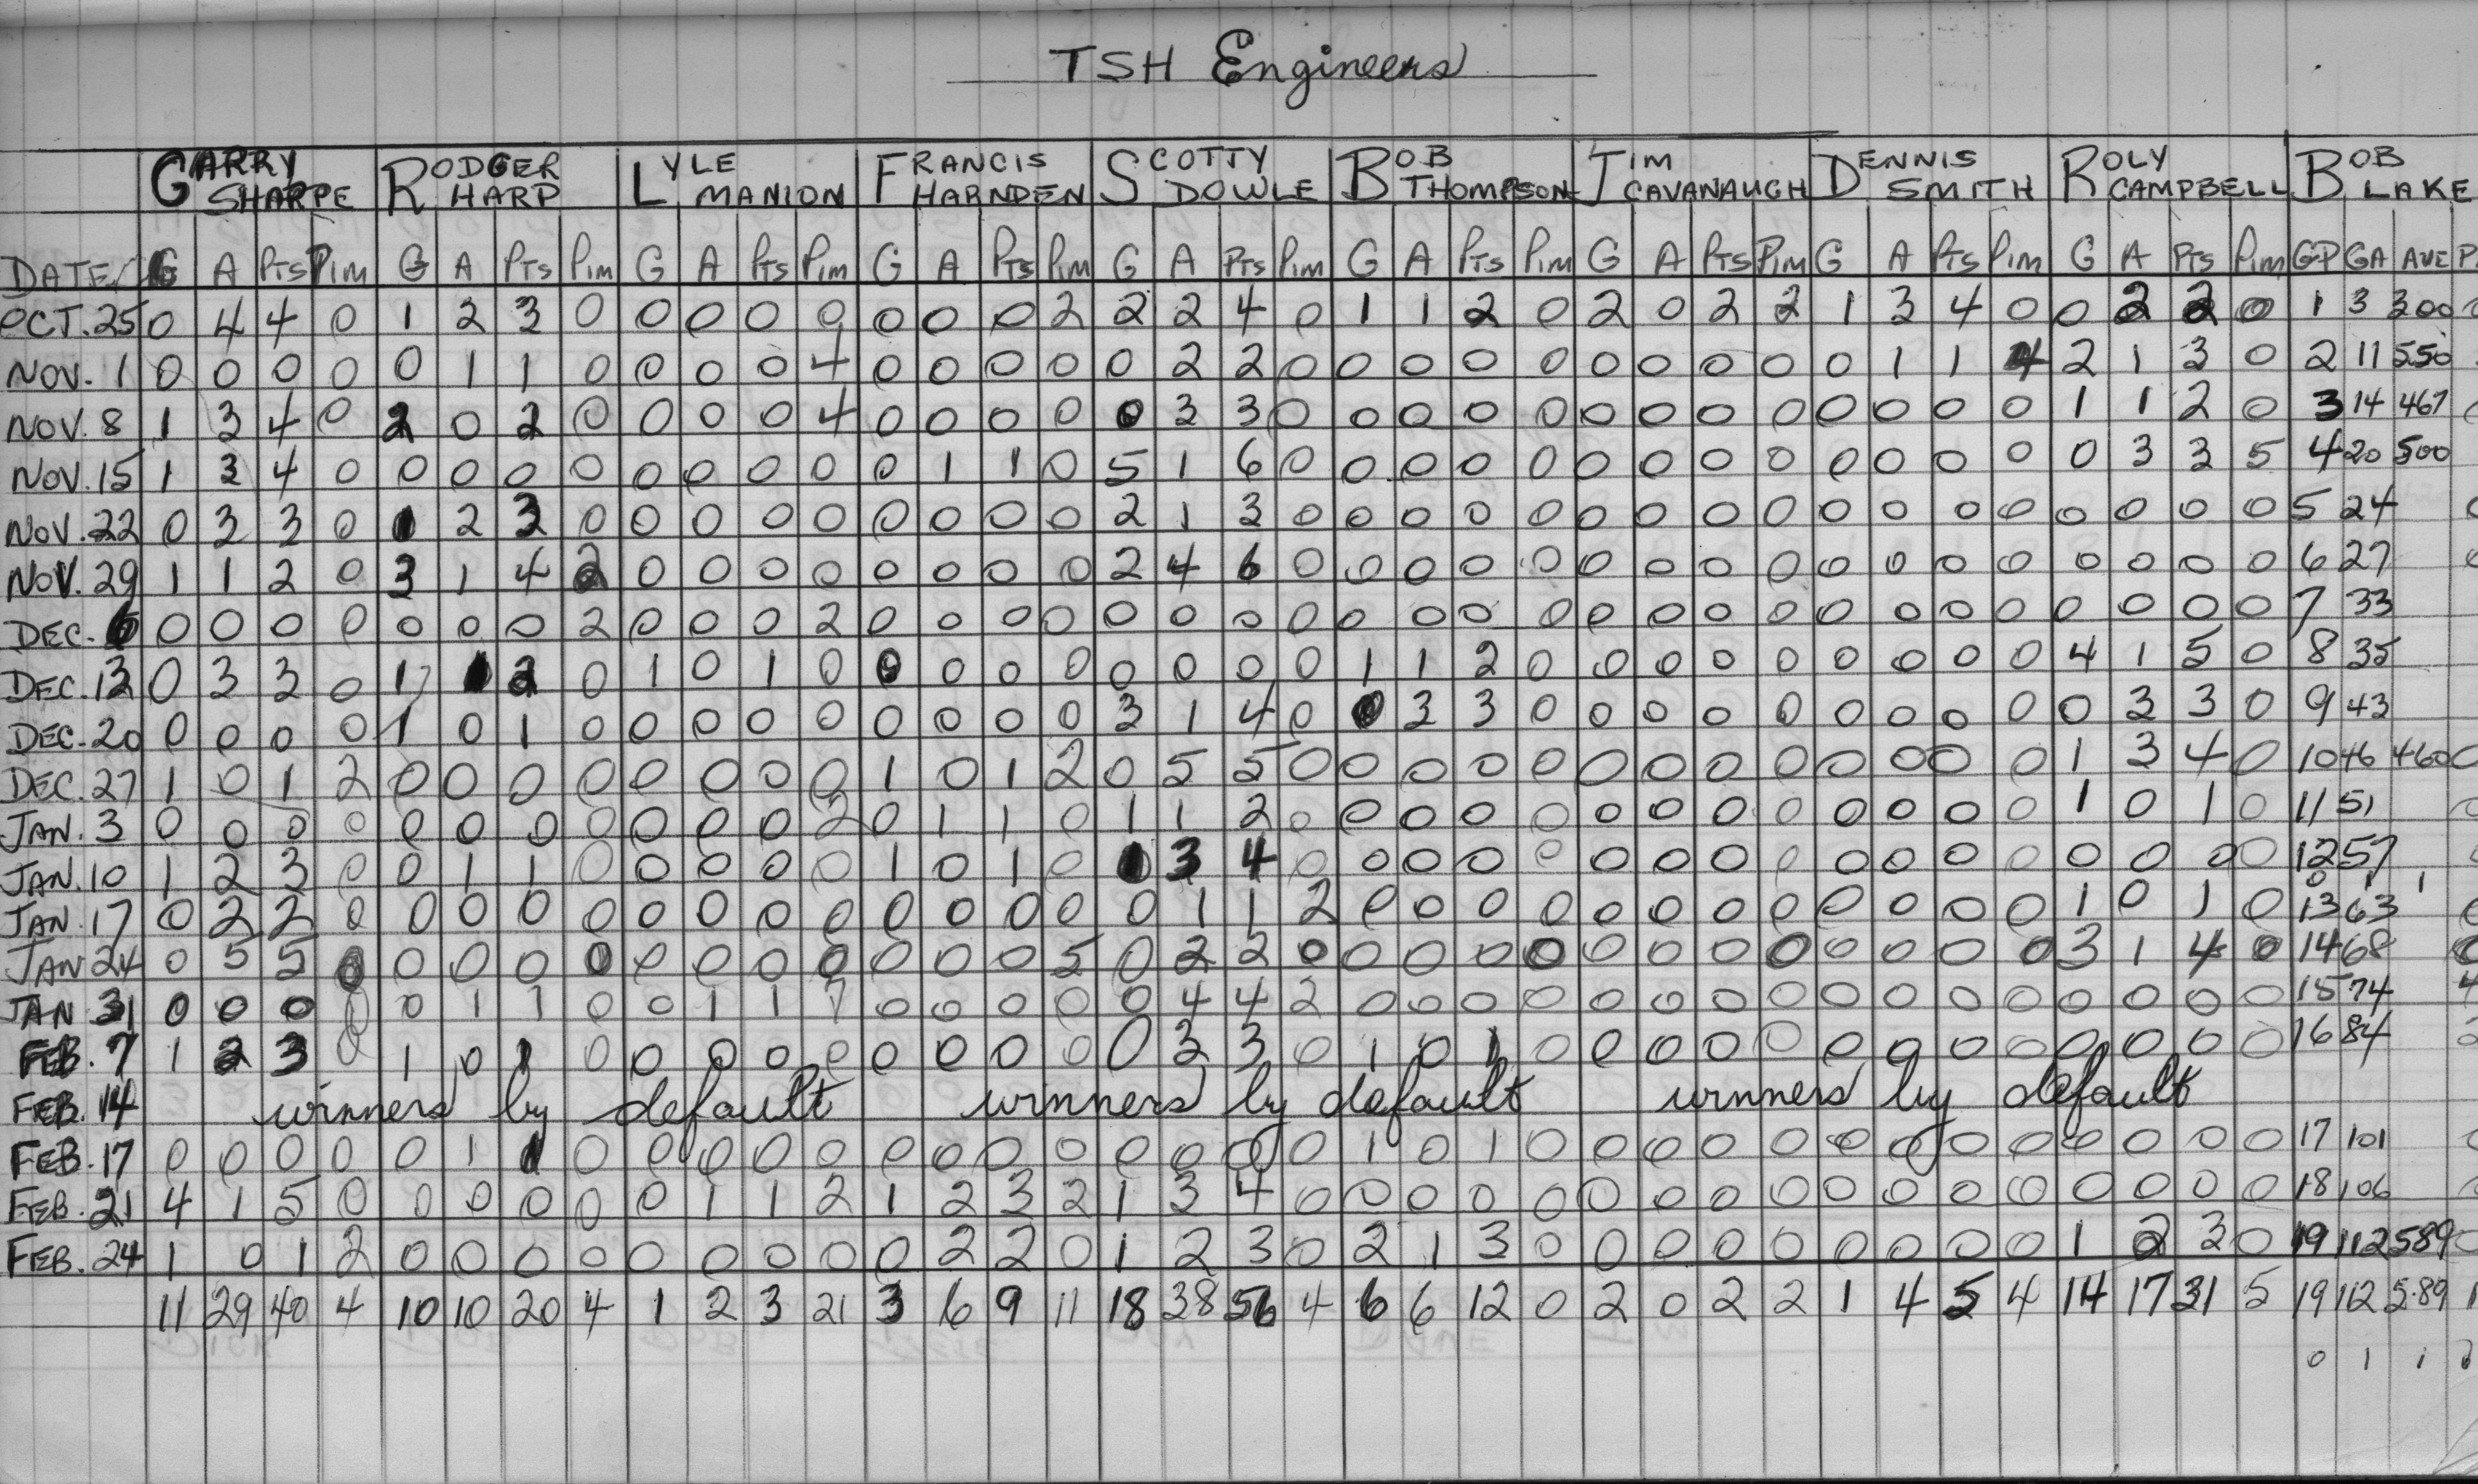 TSH Engineers
GARRY SHARPE RODGER HARP LYLE MANION FRANCIS HARNDEN SCOTTY DOWLE BOB THOMPSON JIM CAVANAUGH DENNIS SMITH ROLY CAMPBELL BOB LAKE
DATE G A PTS PIM G A PTS PIM G A PTS PIM G A PTS PIM G A PTS PIM G A PTS PIM G A PTS PIM G A PTS PIM G A PTS PIM GP GA AVE P
OCT. 25 0 4 4 0 1 2 3 0 0 0 0 0 0 0 0 2 2 2 4 0 1 1 2 0 2 0 2 2 1 3 4 0 0 2 2 0 1 3 300
NOV. 1 0 0 0 0 0 1 1 0 0 0 0 4 0 0 0 0 0 2 2 0 0 0 0 0 0 0 0 0 0 1 1 4 2 1 3 0 2 11 550
NOV. 8 1 3 4 0 2 0 2 0 0 0 0 4 0 0 0 0 0 3 3 0 0 0 0 0 0 0 0 0 0 0 0 0 1 1 2 0 3 14 467
NOV. 15 1 3 4 0 0 0 0 0 0 0 0 0 0 1 1 0 5 1 6 0 0 0 0 0 0 0 0 0 0 0 0 0 0 3 3 5 4 20 500
NOV. 22 0 3 3 0 1 2 3 0 0 0 0 0 0 0 0 0 2 1 3 0 0 0 0 0 0 0 0 0 0 0 0 0 0 0 0 0 5 24
NOV. 29 1 1 2 0 3 1 4 2 0 0 0 0 0 0 0 0 2 4 6 0 0 0 0 0 0 0 0 0 0 0 0 0 0 0 0 0 6 27
DEC. 6 0 0 0 0 0 0 0 2 0 0 0 2 0 0 0 0 0 0 0 0 0 0 0 0 0 0 0 0 0 0 0 0 0 0 0 0 7 33
DEC. 13 0 3 3 0 1 1 2 0 1 0 1 0 0 0 0 0 0 0 0 0 1 1 2 0 0 0 0 0 0 0 0 0 4 1 5 0 8 35
DEC. 20 0 0 0 0 1 0 1 0 0 0 0 0 0 0 0 0 3 1 4 0 0 3 3 0 0 0 0 0 0 0 0 0 0 3 3 0 9 43
DEC. 27 1 0 1 2 0 0 0 0 0 0 0 0 1 0 1 2 0 5 5 0 0 0 0 0 0 0 0 0 0 0 0 0 1 3 4 0 10 46 460 0
JAN. 3 0 0 0 0 0 0 0 0 0 0 0 2 0 1 1 0 1 1 2 0 0 0 0 0 0 0 0 0 0 0 0 0 1 0 1 0 11 51
JAN. 10 1 2 3 0 0 1 1 0 0 0 0 0 1 0 1 0 1 3 4 0 0 0 0 0 0 0 0 0 0 0 0 0 0 0 0 0 12 57
0 1 1
JAN. 17 0 2 2 0 0 0 0 0 0 0 0 0 0 0 0 0 0 1 1 2 0 0 0 0 0 0 0 0 0 0 0 0 1 0 1 0 13 63
JAN 24 0 5 5 0 0 0 0 0 0 0 0 0 0 0 0 5 0 2 2 0 0 0 0 0 0 0 0 0 0 0 0 0 3 1 4 0 14 68 0
JAN 31 0 0 0 0 0 1 1 0 0 1 1 7 0 0 0 0 0 4 4 2 0 0 0 0 0 0 0 0 0 0 0 0 0 0 0 0 15 74 4
FEB. 7 1 2 3 0 1 0 1 0 0 0 0 0 0 0 0 0 0 3 3 0 1 0 1 0 0 0 0 0 0 0 0 0 0 0 0 0 16 84 2
FEB. 14 winners by default winners by default winners by default
FEB. 17 0 0 0 0 0 1 1 0 0 0 0 0 0 0 0 0 0 0 0 0 1 0 1 0 0 0 0 0 0 0 0 0 0 0 0 0 17 101
FEB. 21 4 1 5 0 0 0 0 0 0 1 1 2 1 2 3 2 1 3 4 0 0 0 0 0 0 0 0 0 0 0 0 0 0 0 0 0 18 106
FEB. 24 1 0 1 2 0 0 0 0 0 0 0 0 0 2 2 0 1 2 3 0 2 1 3 0 0 0 0 0 0 0 0 0 1 2 3 0 19 112 589 0
11 29 40 4 10 10 20 4 1 2 3 21 3 6 9 11 18 38 56 4 6 6 12 0 2 0 2 2 1 4 5 4 14 17 31 5 19 112 5.89 1
0 1 1